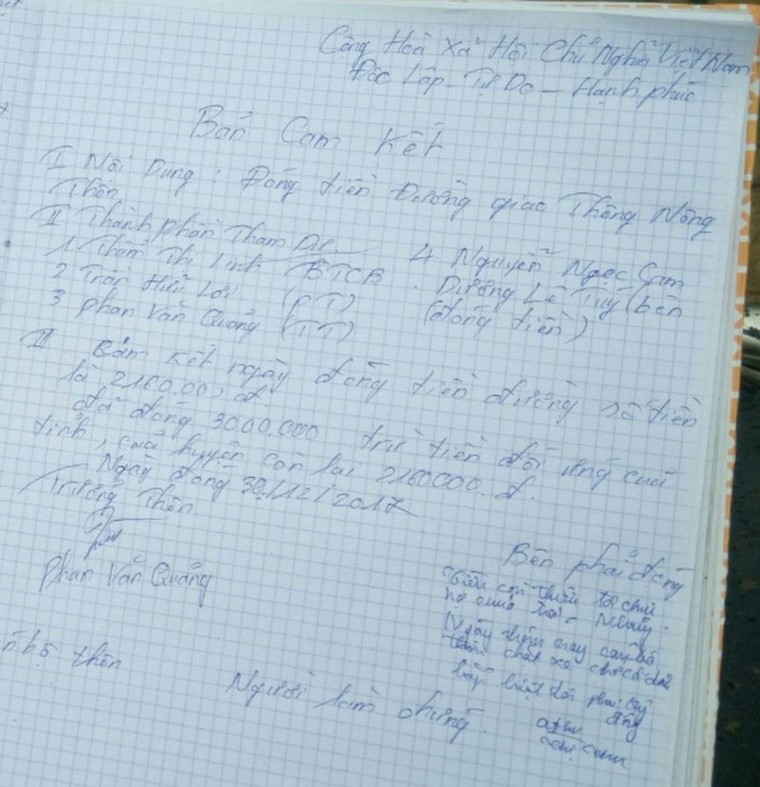 Công Hoà Xã Hội Chủ Nghĩa Việt Nam
Độc Lập - Tự Do - Hạnh phúc
Bản Cam Kết
I Nội Dung : Đóng tiền Đường giao Thông Nông
Thôn
II Thành phần Tham Dự
1 Thẩm Thị Linh BTCB
2 Trần Hữu Lơi (PT)
3 phan Văn Quảng (TT)
4 Nguyễn Ngọc Cam
Dương Lê Tuý (bên
đóng tiền)
III Cam Kết ngày đóng tiền đường số tiền
là 2160.00, đ
đã đóng 3000.000 trừ tiền đối ứng cuả
tỉnh, cuả huyện còn lại 2160000.đ.
Ngày đóng 30/12/2017
Trưởng Thôn
Phan Văn Quảng
Bên phải đóng
tiền còn thiếu tôi
Ngày hôm nay cán bộ
bắt tôi phải ký
đóng
bộ thôn
Người làm chứng.